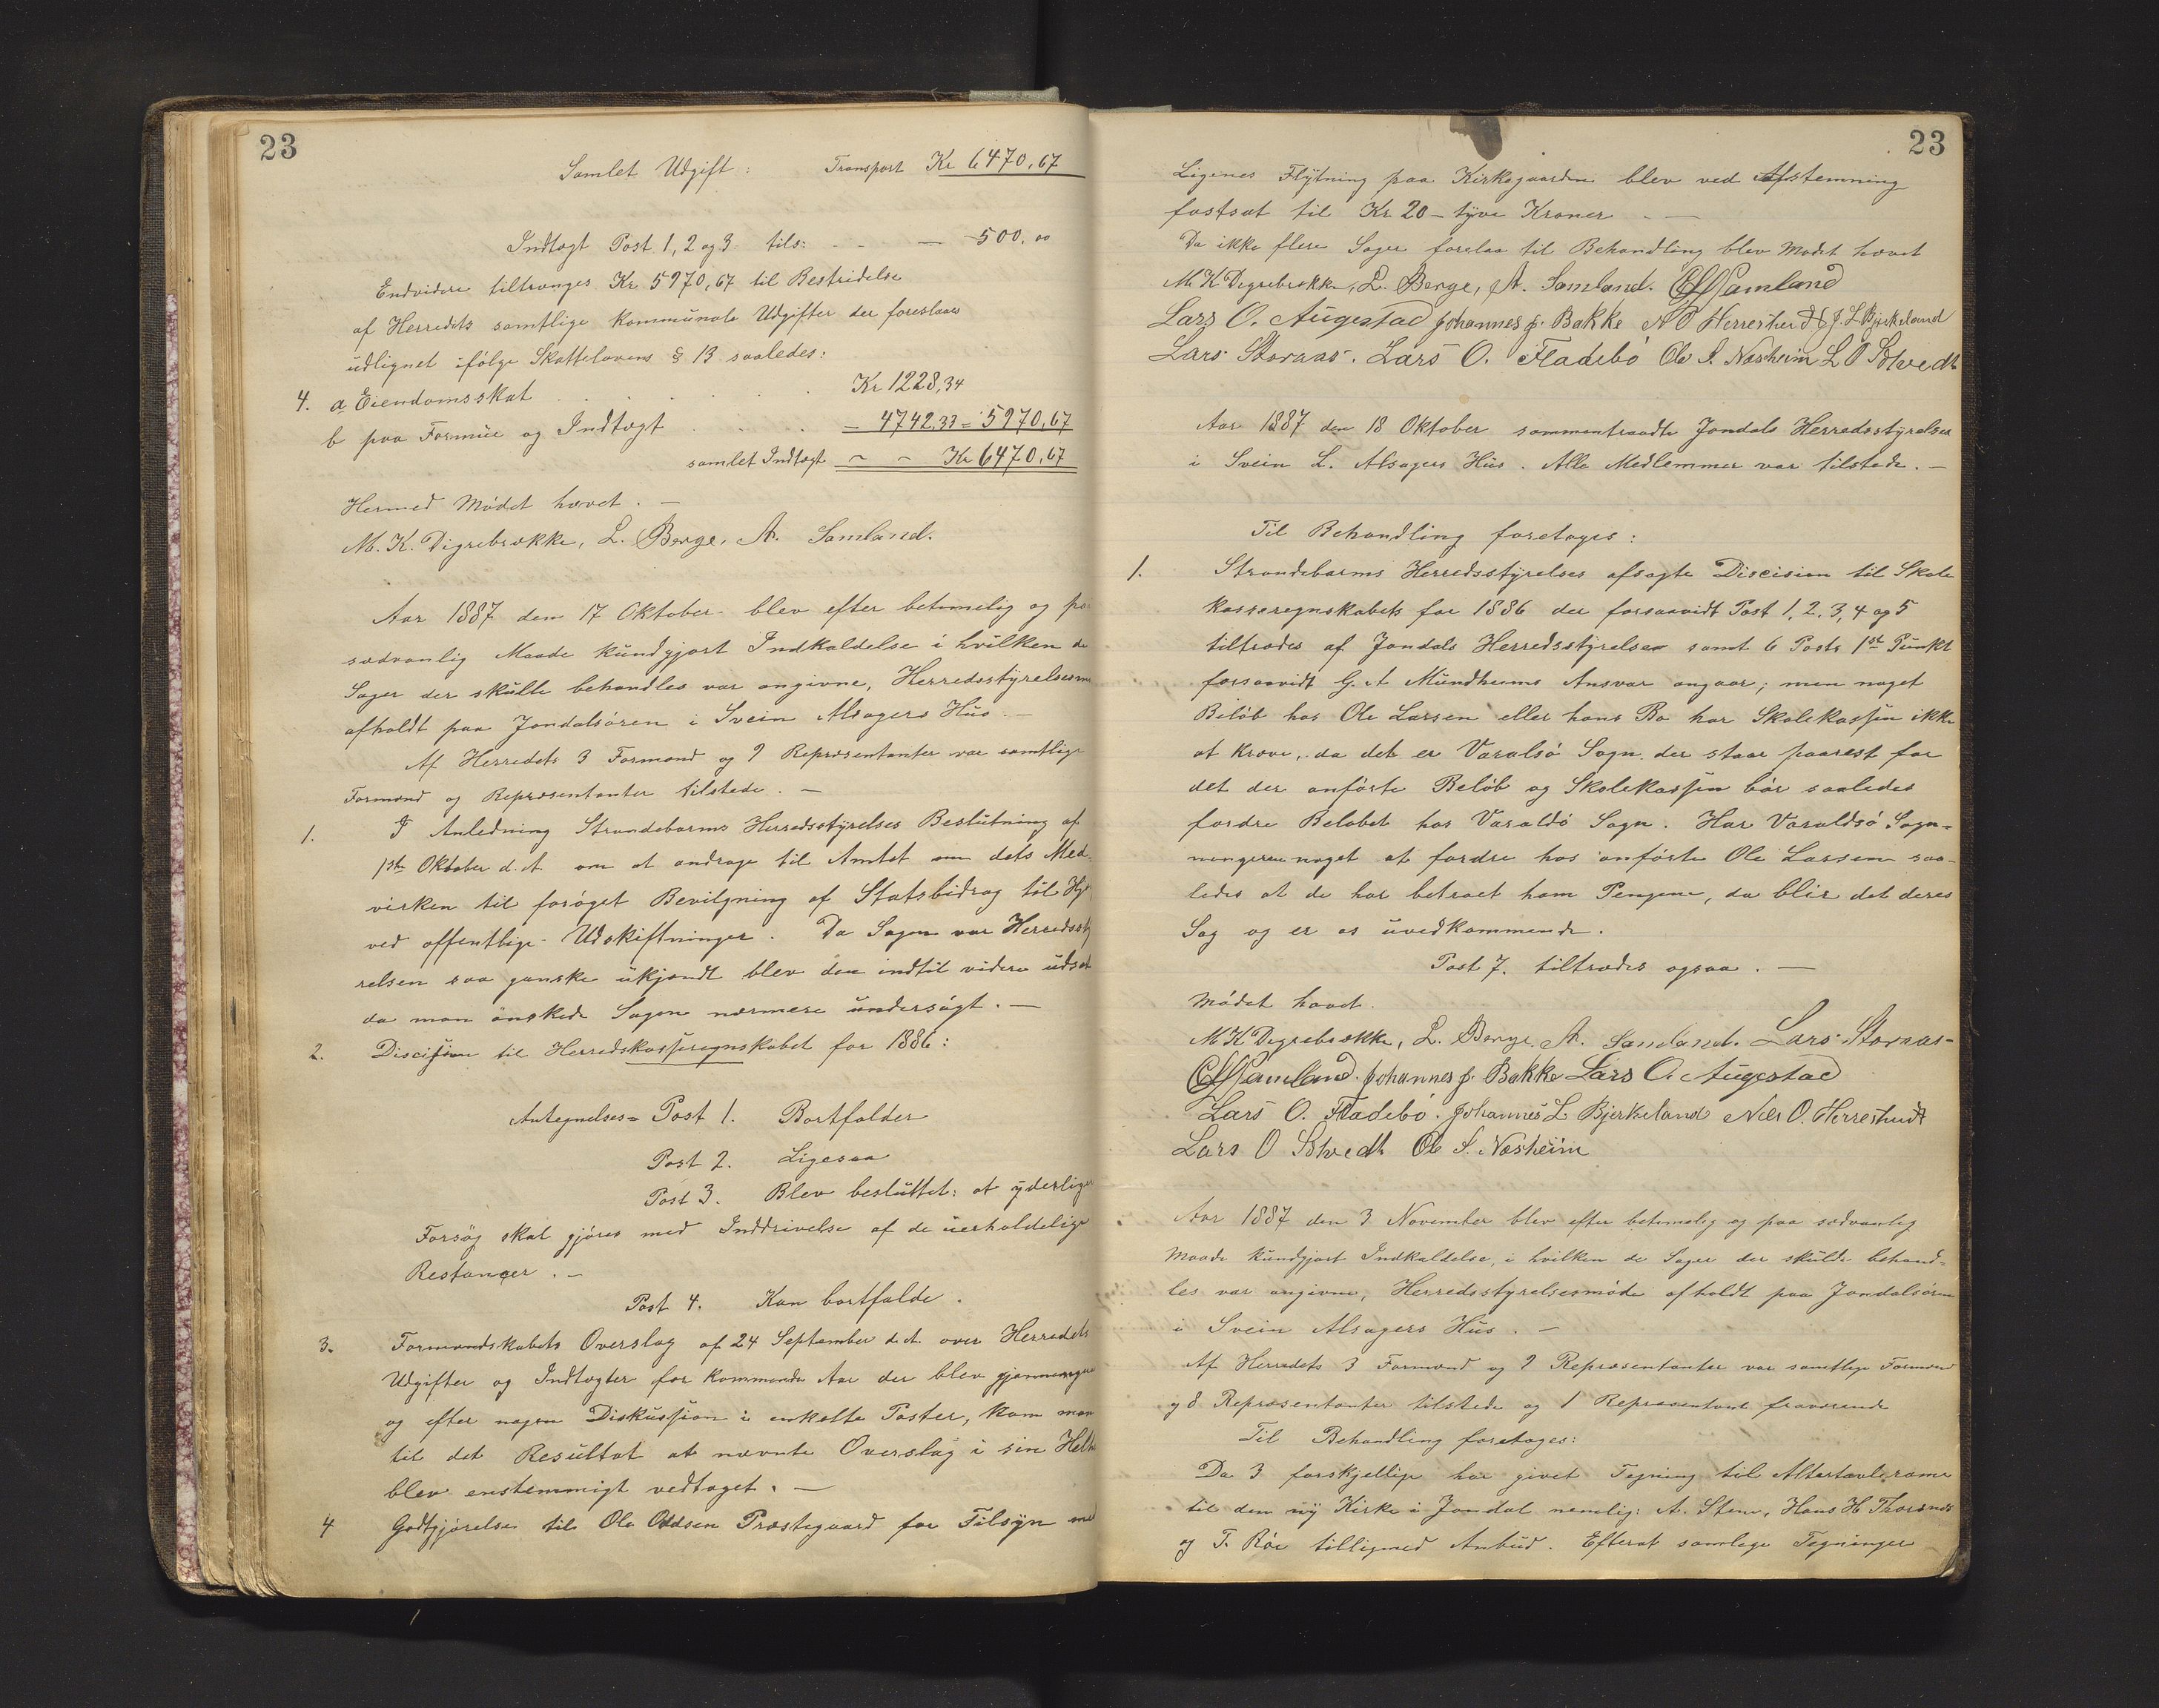 23
Samlet Udgift: Transport Kr 6470,67
Indtægt Post 1, 2 og 3 tils: — 500,00
Endvidere tiltrænges Kr 5970,67 til Bestridelse
af Herredets samtlige kommunale Udgifter der foreslaaes
udlignet ifølge Skattelovens § 13 saaledes:
4. a Eiendomsskat Kr 1228,34
b paa Formue og Indtægt — 4742,33 = 5970,67
samlet Indtægt Kr 6470,67
Hermed Mødet hævet. —
M. K. Digrebrække, L. Berge, A. Samland.
Aar 1887 den 17 Oktober blev efter betimelig og pa
sædvanlig Maade kundgjort Indkaldelse i hvilken de
Sager der skulle behandles var angivne, Herredsstyrelsesm
afholdt paa Jondalsøren i Svein Alsagers Hus. —
Af Herredets 3 Formænd og 9 Repræsentanter var samtlige
Formænd og Repræsentanter tilstede. —
1. I Anledning Strandebarms Herredsstyrelses Beslutning af
1ste Oktober d. A. om at andrage til Amtet om dets Med-
virken til forøget Bevilgning af Statsbidrag til Hj
ved offentlige Udskiftninger. Da Sagen var Herredssty
relsen saa ganske ukjendt blev den indtil videre udsat
da man ønskede Sagen nærmere undersøgt. —
2. Discission til Herredskasseregnskabet for 1886:
Antegnelses= Post 1. Bortfalder
Post 2. Ligesaa
Post 3. Blev besluttet: at yderliger
Forsøg skal gjøres med Inddrivelse af de uerholdelige
Restancer. —
Post 4. Kan bortfalde.
3. Formandskabets Overslag af 24 September d. A. over Herredets
Udgifter og Indtægter for kommende Aar der blev gjennemgaa
og efter nogen Diskussion i enkelte Poster, kom man
til det Resultat at nævnte Overslag i sin Helh
blev enstemmigt vedtaget. —
4 Godtgjørelse til Ole Oddsen Præstegaard for Tilsyn med
23
Ligenes Flytning paa Kirkegaarden blev ved Afstemning
fastsat til Kr 20 — tyve Kroner. —
Da ikke flere Sager forelaa til Behandling blev Mødet hævet
M. K. Digrebrække, L. Berge, A. Samland. Samland
Lars O. Augestad Johannes J. Bakke N O Herrestvedt J. L. Bjerkeland
Lars Storaas. Lars O. Fladebø Ole S. Næsheim L O Solvedt
Aar 1887 den 18 Oktober sammentraadte Jondals Herredsstyrelse
i Svein L. Alsagers Hus. Alle Medlemmer var tilstede. —
Til Behandling foretages:
1. Strandebarms Herredsstyrelses afsagte Discision til Skole
kasseregnskabets for 1886 der forsaavidt Post 1, 2, 3, 4 og 5
tiltrædes af Jondals Herredsstyrelse samt 6 Posts 1ste Punkt
forsaavidt G. A Mundheims Ansvar angaar; men noget
Beløb hos Ole Larsen eller hans Bo har Skolekassen ikke
at kræve, da det er Varalsø Sogn der staar paarest for
det der anførte Beløb og Skolekassen bør saaledes
fordre Beløbet hos Varaldsø Sogn. Har Varaldsø Sogn=
ningeren noget at fordre hos anførte Ole Larsen saa-
ledes at de har betroet ham Pengene, da blir det deres
Sag og er os uvedkommende.
Post 7. tiltrædes ogsaa. —
Mødet hævet.
M K Digrebrække, L. Berge A. Samland. Lars Storaas
Samland. Johannes J. Bakke Lars O. Augestad
Lars O. Fladebø. Johannes L Bjerkeland Nils O. Herrestvedt
Lars O Solvedt Ole S. Næsheim
Aar 1887 den 3 November blev efter betimelig og paa sædvanlig
Maade kundgjort Indkaldelse, i hvilken de Sager der skulde behand=
les var angivne, Herredsstyrelsesmøde afholdt paa Jondalsøren
i Svein Alsagers Hus. —
Af Herredets 3 Formænd og 9 Repræsentanter var samtlige Formænd
og 8 Repræsentanter tilstede og 1 Repræsentant fraværende
Til Behandling foretages:
Da 3 forskjellige har givet Tegning til Altertavleramme
til den ny Kirke i Jondal nemlig: A. Stene, Hans H. Thorsnes
og T. Røe tilligemed Anbud. Efterat samtlige Tegninger